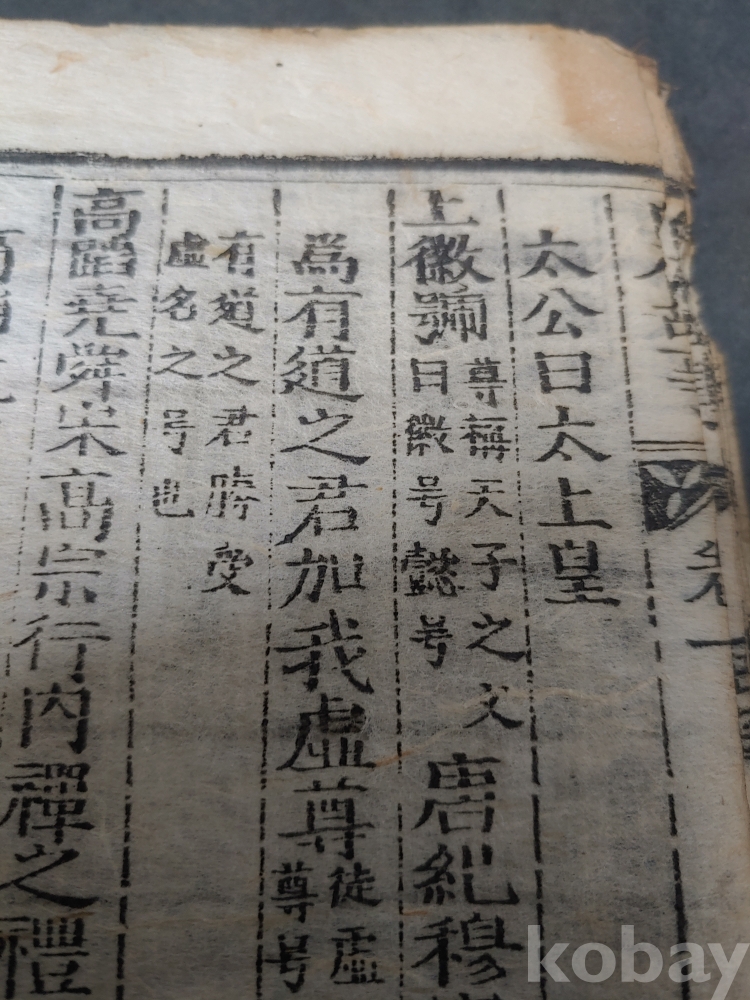 卷一
太公曰太上皇
上徽號 尊稱天子之父 曰徽号懿号 唐紀穆
爲有道之君加我虛尊 徒虛 尊号
有道之君 受
虛名之号也
高蹈堯舜宋高宗行內禪之禮
kobay